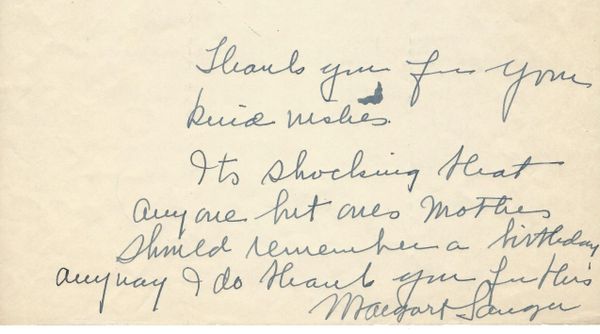 Thank you for your
kind wishes.
Its shocking that
anyone but ones Mother
should remember a birthday
anyway I do thank you for this
Margaret Sanger